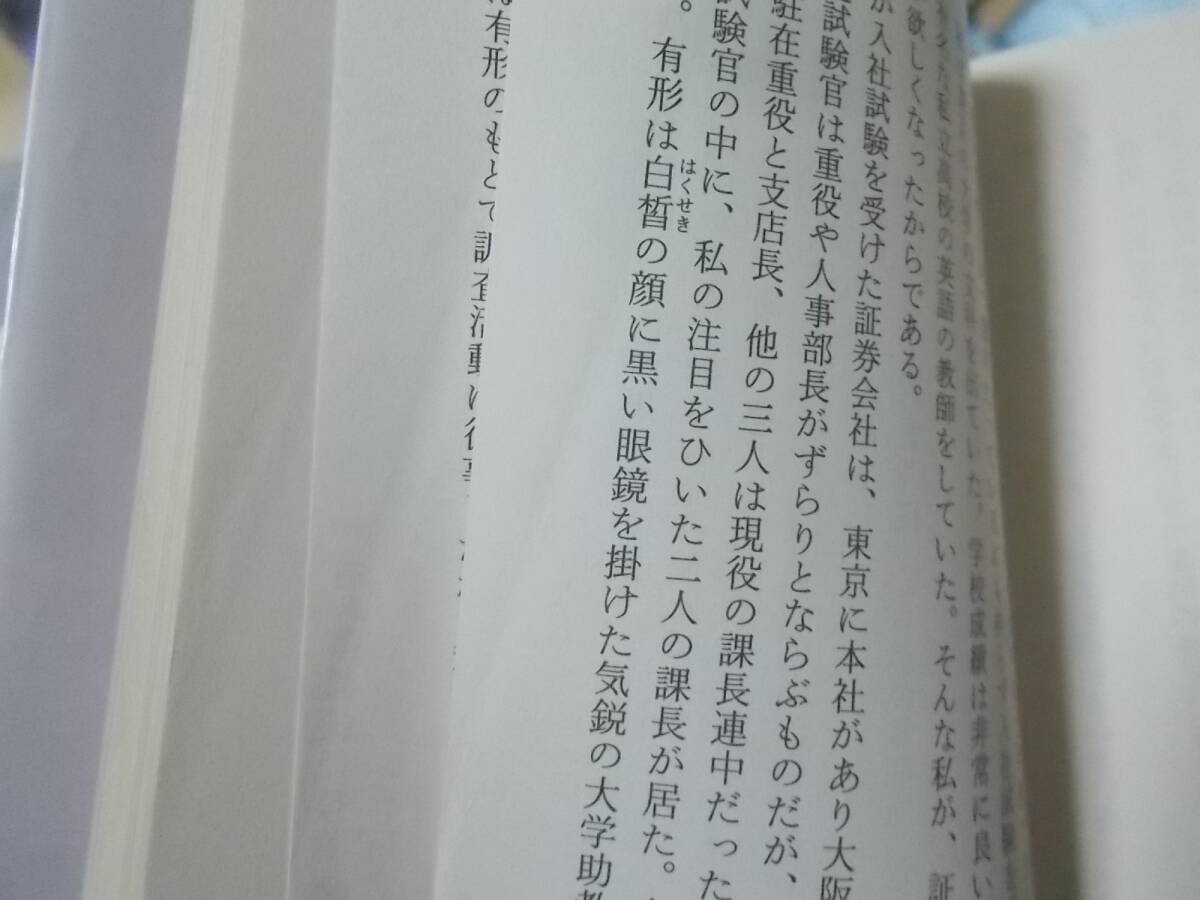 を出ていた。学校成績は非常に良い
私立高校の英語の教師をしていた。そんな私が、証
欲しくなったからである。
が入社試験を受けた証券会社は、東京に本社があり大阪
試験官は重役や人事部長がずらりとならぶものだが、
駐在重役と支店長、他の三人は現役の課長連中だった
試験官の中に、私の注目をひいた二人の課長が居た。
。有形は白皙の顔に黒い眼鏡を掛けた気鋭の大学助教
はくせき
は有形のもとで調査活動に従事